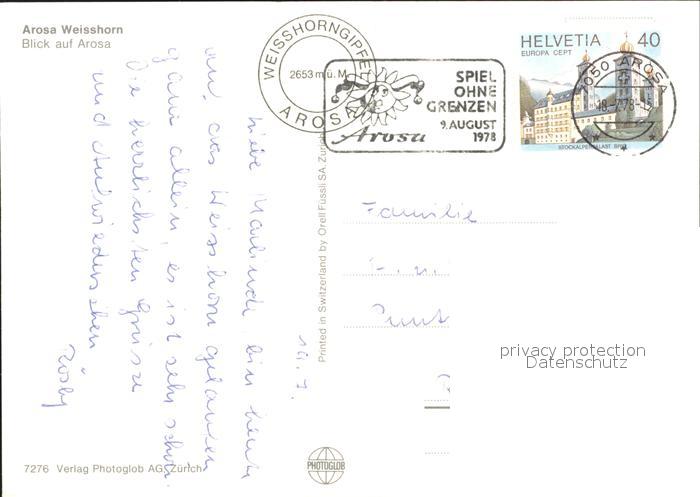 Arosa Weisshorn
Blick auf Arosa
WEISSHORNGIPFEL
2653 m ü. M.
AROSA
SPIEL
OHNE
GRENZEN
9. AUGUST
1978
Arosa
HELVETIA 40
EUROPA CEPT
STOCKALPERPALAST BRIG
7050 AROSA
18.-7.78-15
14.7.
Liebe bin heute
auf das Weisshorn gelaufen
ganz allein, es ist sehr schön.
Die herrlichsten Grüsse
und Aufwiedersehen
Rösly
Familie
Printed in Switzerland by Orell Füssli SA, Zürich
PHOTOGLOB
7276 Verlag Photoglob AG, Zürich
privacy protection
Datenschutz